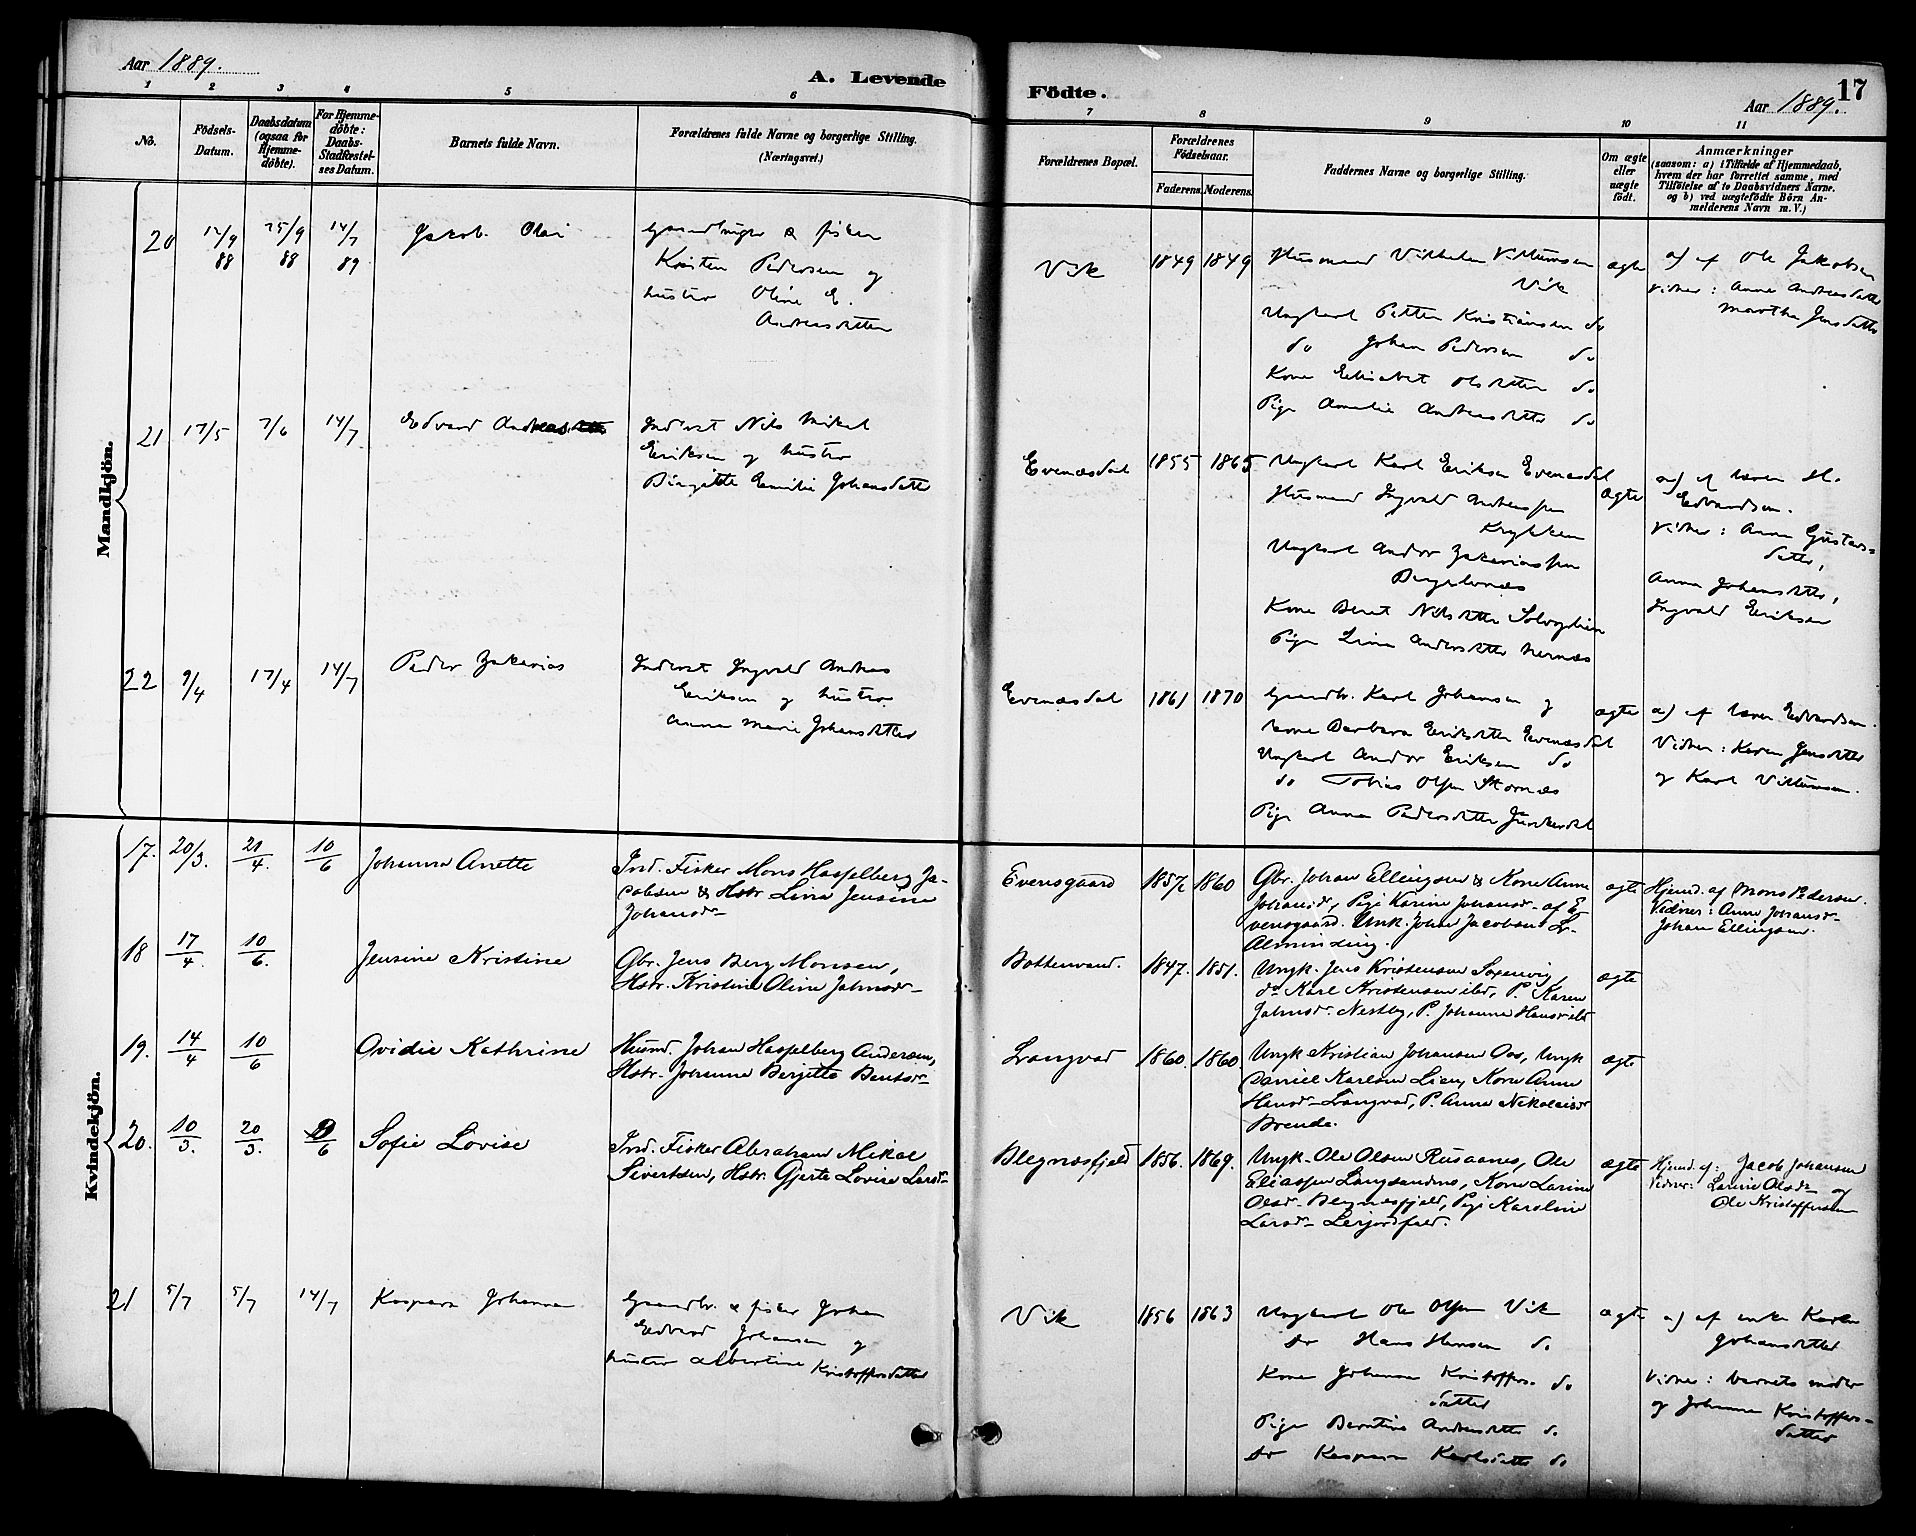 Aar 1889.
A. Levende
Födte.
17
Aar 1889.
1 2 3 4 5 6 7 8 9 10 11
No.
Födsels-
Datum.
Daabsdatum
(ogsaa for
Hjemme-
döbte).
For Hjemme-
döbte:
Daabs-
Stadfæstel-
ses Datum.
Barnets fulde Navn.
Forældrenes fulde Navne og borgerlige Stilling.
(Næringsvei.)
Forældrenes Bopæl.
Forældrenes
Födselsaar.
Faderens. Moderens.
Faddernes Navne og borgerlige Stilling.
Om ægte
eller
uægte
födt.
Anmærkninger
(saasom: a) i Tilfælde af Hjemmedaab,
hvem der har forrettet samme, med
Tilföielse af to Daabsvidners Navne.
og b) ved uægtefödte Börn An-
melderens Navn m. V.)
Mandkjön.
20 12/9 88 25/9 88 14/7 89
Jakob Olai
fisker
Kristen Pedersen og
hustro Oline E.
Andreasdatter
Vik
1849 1849
Husmand Vilhelm Villumsen
Vik
Ungkarl Petter Kristiansen do
do Johan Pedersen do
Kone Elisabet Olsdatter do
Pige Amalie Andreasdatter do
ægte
a) af Ole Jakobsen
Vidner: Anne Andreasdatter
Martha Jensdatter
21 17/5 7/6 14/7
Edvard Andreas
Inderst Nils Mikal
Eriksen og hustro
Birgitte Emilie Johansdatter
Evenæsdal
1855 1865
Ungkarl Karl Eriksen Evenæsdal
Husmand Ingvald Andreassen
Krykken
Ungkarl Andor Zakariassen
Kone Beret Nilsdatter
Pige Lina Andersdatter
ægte
a) af lærer H.
Edvardsen.
Vidner: Anna Gustavs-
datter,
Anna Johansdatter,
Ingvald Eriksen
22 9/4 17/4 14/7
Peder Zakarias
Inderst Ingvald Andreas
Eriksen og hustro
Anna Marie Johansdatter
Evenæsdal
1861 1870
Gaardbr. Karl Johansen og
kone Barbara Eriksdatter Evenæsdal
Ungkarl Andor Eriksen do
do Tobias Olsen Stornæs
Pige Anna Pedersdatter Junkerdal
ægte
a) af lærer Edvardsen.
Vidner: Karen Jensdatter
og Karl Villumsen.
Kvindekjön.
17. 20/3. 21/4. 10/6
Johanna Anette
Ind. Fisker Mons Hasselberg Ja-
cobsen & Hstr. Lina Jensine
Johansd-
Evensgaard
1857 1860
Gbr. Johan Ellingsen & Kone Anne
Johansd., Pige Karine Johansd- af E-
vensgaard. Unk. Johan Jacobsen
Alminding.
ægte
Hjemd. af Mons Pedersen.
Vidner: Anne Johansd-
Johan Ellingsen.
18 17/4. 10/6.
Jensine Kristine
Gbr. Jens Berg Monsen,
Hstr. Kristine Oline Johnsd-
Bottenvand.
1847. 1851.
Ungk. Jens Kristensen
do Karl Kristensen ibd, P. Karen
Johnsd- Nestby, P. Johanna Hansd ibd
ægte
19. 14/4 10/6
Ovidie Kathrine
Husmd. Johan Hasselberg Andersen,
Hstr. Johanna Bergitte Bentsd-
Langvad
1860. 1860.
Ungk Kristian Johansen Oos, Ungk
Daniel Karlsen Lien, Kone Anne
Hansd- Langvad, P. Anne Nikolaisd-
Brende.
ægte
20. 10/3. 20/3. 9/6
Sofie Lovise
Ind. Fisker Abraham Mikal
Sivertsen, Hstr. Gjerte Lovise Larsd-
Blegnæsfjeld
1856. 1869.
Ungk. Ole Olsen Rusaanes, Ole
Eliassen Langsandnes, Kone Larine
Olsd- Blegnæsfjeld, Pige Karoline
Larsd-
ægte
Hjemd. af: Jacob Johansen
Vidner: Larine Olsd- og
Ole Kristoffersen
21 5/7 5/7 14/7
Kaspara Johanna
Gaardbr. & fisker Johan
Edvard Johansen og
hustro Albertine Kristoffersdatter
Vik
1856 1863
Ungkarl Ole Olsen Vik
do Hans Hansen do
Kone Johanna Kristoffers- do
datter
Pige Berntine Andreasdatter do
do Kaspara Karlsdatter do
ægte
a) af enke Karen
Johansdatter
Vidner: barnets moder
og Johanna Kristoffers-
datter